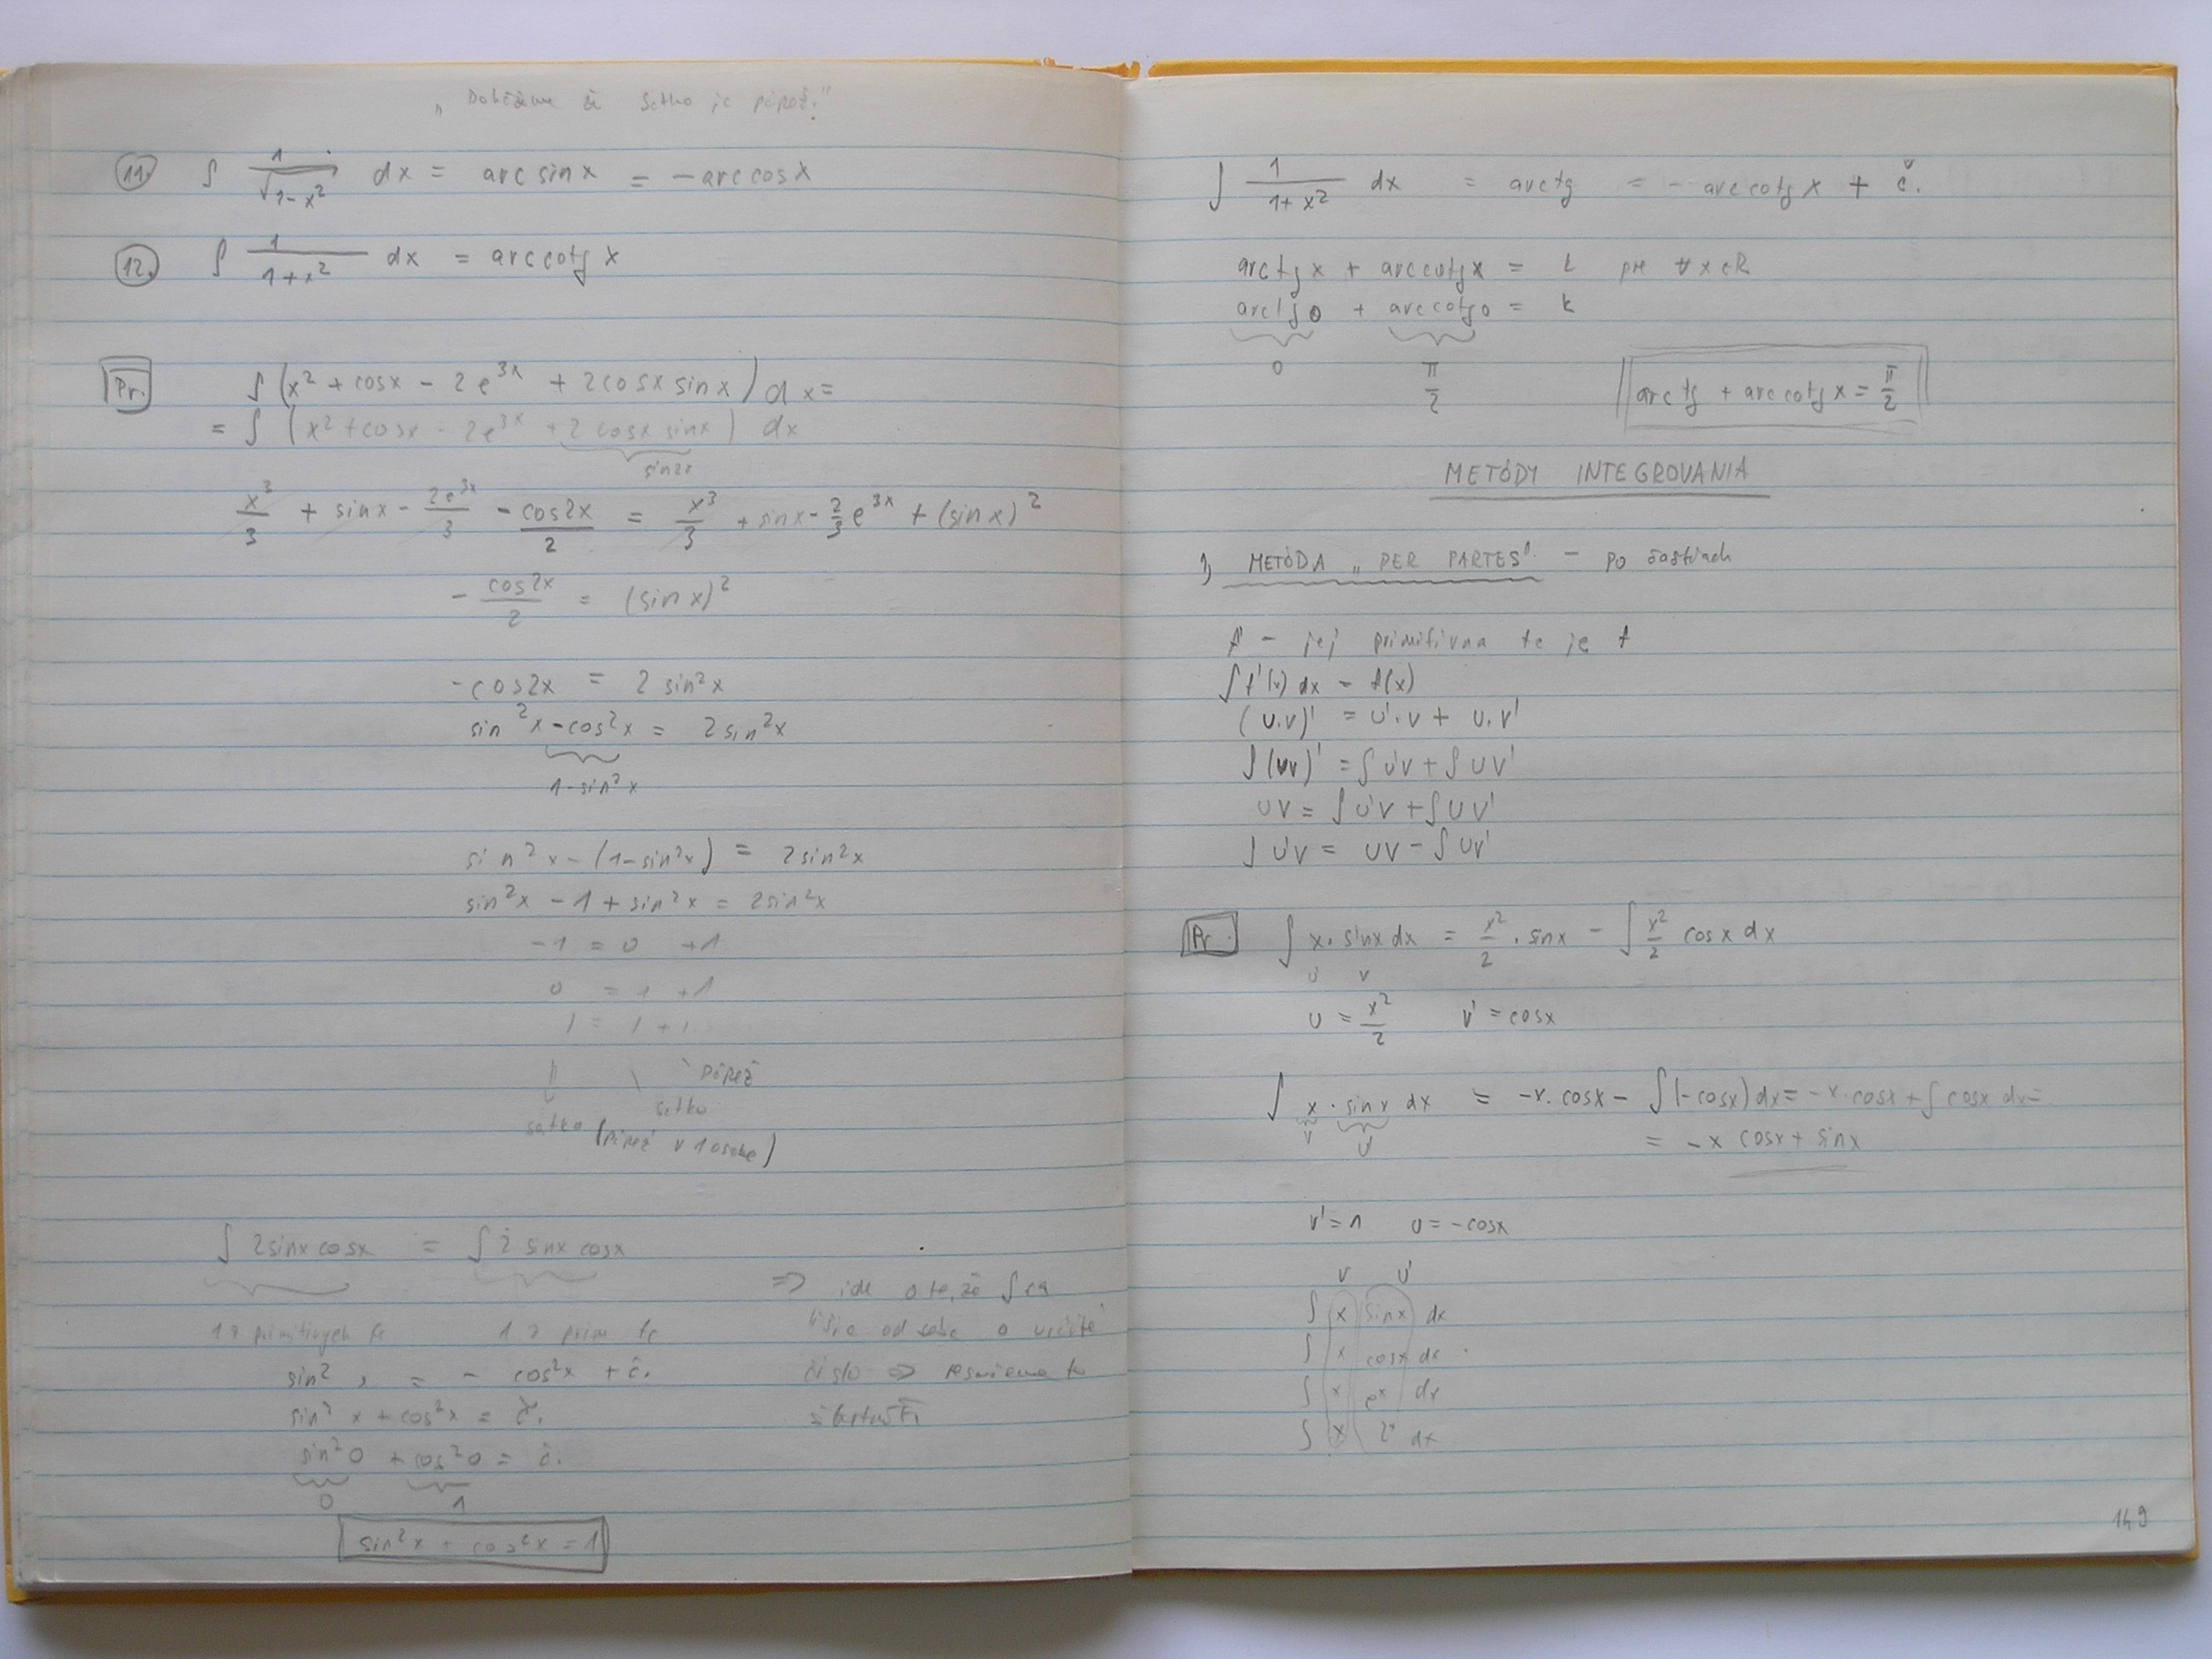 „Dokážme že sátko je pápež."
11. ∫ 1/√(1-x²) dx = arc sin x = - arc cos x
12. ∫ 1/(1+x²) dx = arc cotg x
Pr. ∫ (x² + cosx - 2e^3x + 2cosx sinx) dx =
= ∫ (x² + cosx - 2e^3x + 2 cosx sinx) dx
sin2x
x³/3 + sinx - 2e^3x/3 - cos2x/2 = x³/3 + sinx - 2/3 e^3x + (sinx)²
- cos2x/2 = (sin x)²
-cos2x = 2 sin²x
sin²x - cos²x = 2 sin²x
1-sin²x
sin²x - (1-sin²x) = 2sin²x
sin²x - 1 + sin²x = 2sin²x
-1 = 0 +1
0 = 1 +1
1 = 1 + 1
pápež
satko
satko (pápež v 1 osobe)
∫ 2sinx cosx = ∫ 2 sinx cosx
1 z primitívnych fc 1 z prim fc
⇒ ide o to, že ∫
od seba o určité
číslo ⇒
sin² x = - cos²x + č.
sin²x + cos²x = č.
sin²0 + cos²0 = č.
0 1
sin²x + cos²x = 1
∫ 1/(1+x²) dx = arctg = - arc cotg x + č.
arctg x + arccotg x = k pre ∀ x ∈ R
arctg 0 + arccotg 0 = k
0 π/2
arctg + arccotg x = π/2
METÓDY INTEGROVANIA
1) METÓDA „PER PARTES" - po častiach
f' - jej primitívna fc je f
∫ f'(x) dx = f(x)
(u.v)' = u'.v + u.v'
∫ (uv)' = ∫ u'v + ∫ uv'
uv = ∫ u'v + ∫ uv'
∫ u'v = uv - ∫ uv'
Pr. ∫ x. sinx dx = x²/2 . sinx - ∫ x²/2 cos x dx
u' v
u = x²/2 v' = cosx
∫ x . sinx dx = -x. cosx - ∫(-cosx) dx = -x.cosx + ∫ cosx dx =
v u'
= -x cosx + sinx
v' = 1 u = -cosx
v u'
∫ x sinx dx
∫ x cosx dx
∫ x e^x dx
∫ x 2^x dx
149